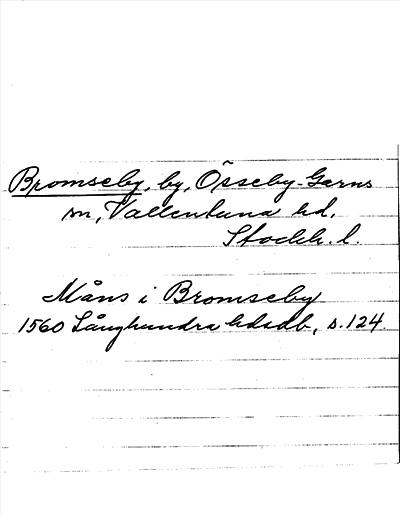 Bromseby, by, Össeby-Garns
sn, Vallentuna hd,
Stockh. l.
Måns i Bromseby
1560 Långhundra hdsdb, s. 124.